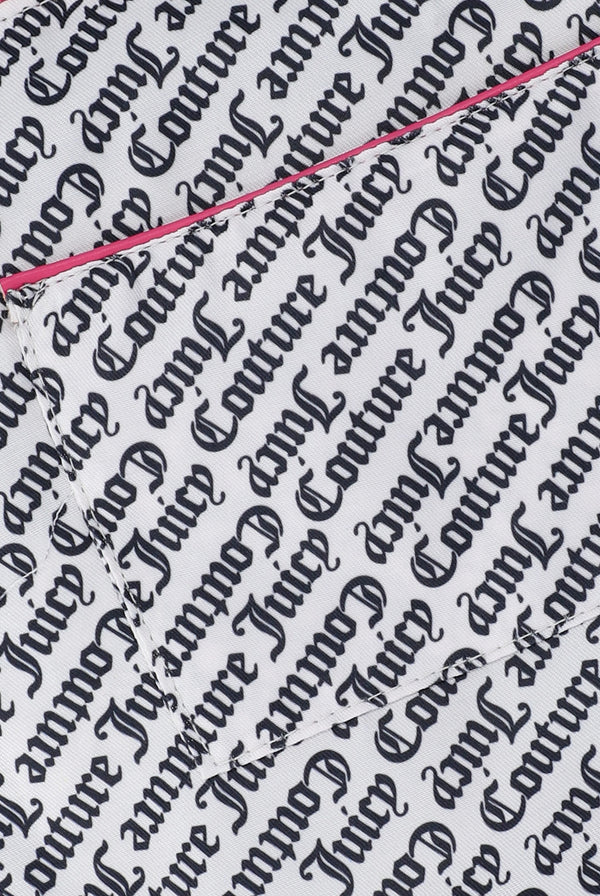 Juicy Couture
Juicy Couture
Juicy Couture
Juicy Couture
Juicy Couture
Juicy Couture
Juicy Couture
Juicy Couture
Juicy Couture
Juicy Couture
Juicy Couture
Juicy Couture